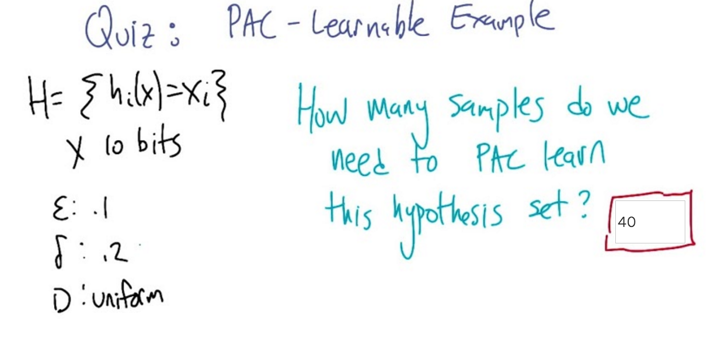 Quiz: PAC-Learnable Example
H= {hi(x)=xi}
X 10 bits
ε: .1
δ: .2
D: uniform
How many samples do we
need to PAC learn
this hypothesis set? 40